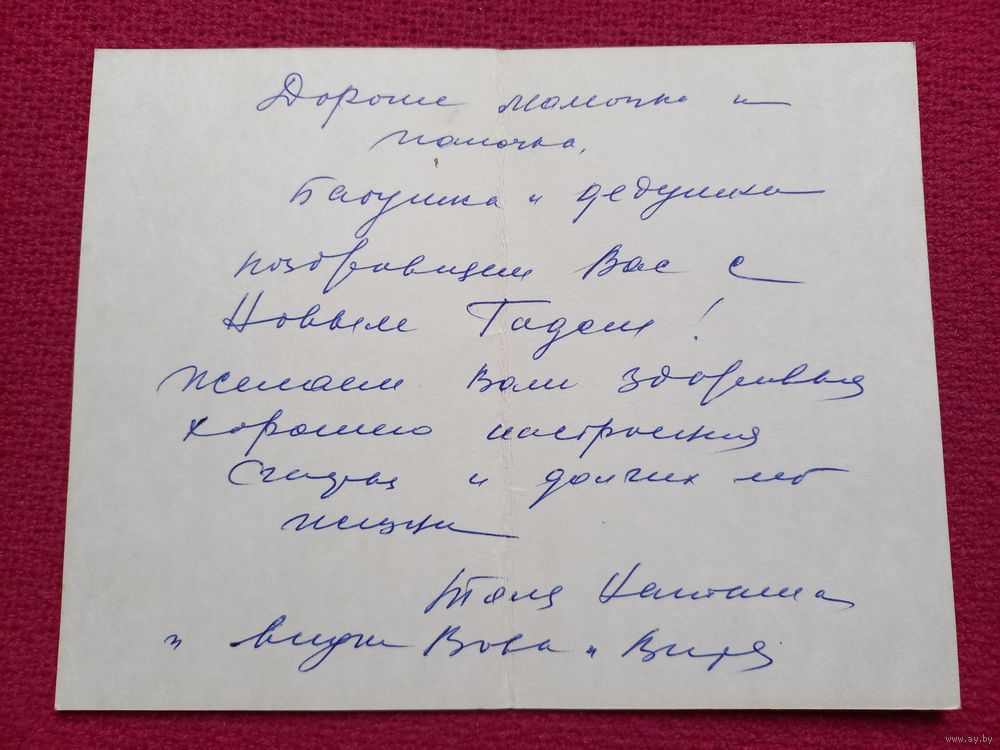 Дорогие мамочка и
папочка,
Бабушка и дедушка
поздравляем Вас с
Новым Годом!
Желаем Вам здоровья
хорошего настроения
счастья и долгих лет
жизни
Толя Наташа
и внуки Вова и Витя
www.ay.by